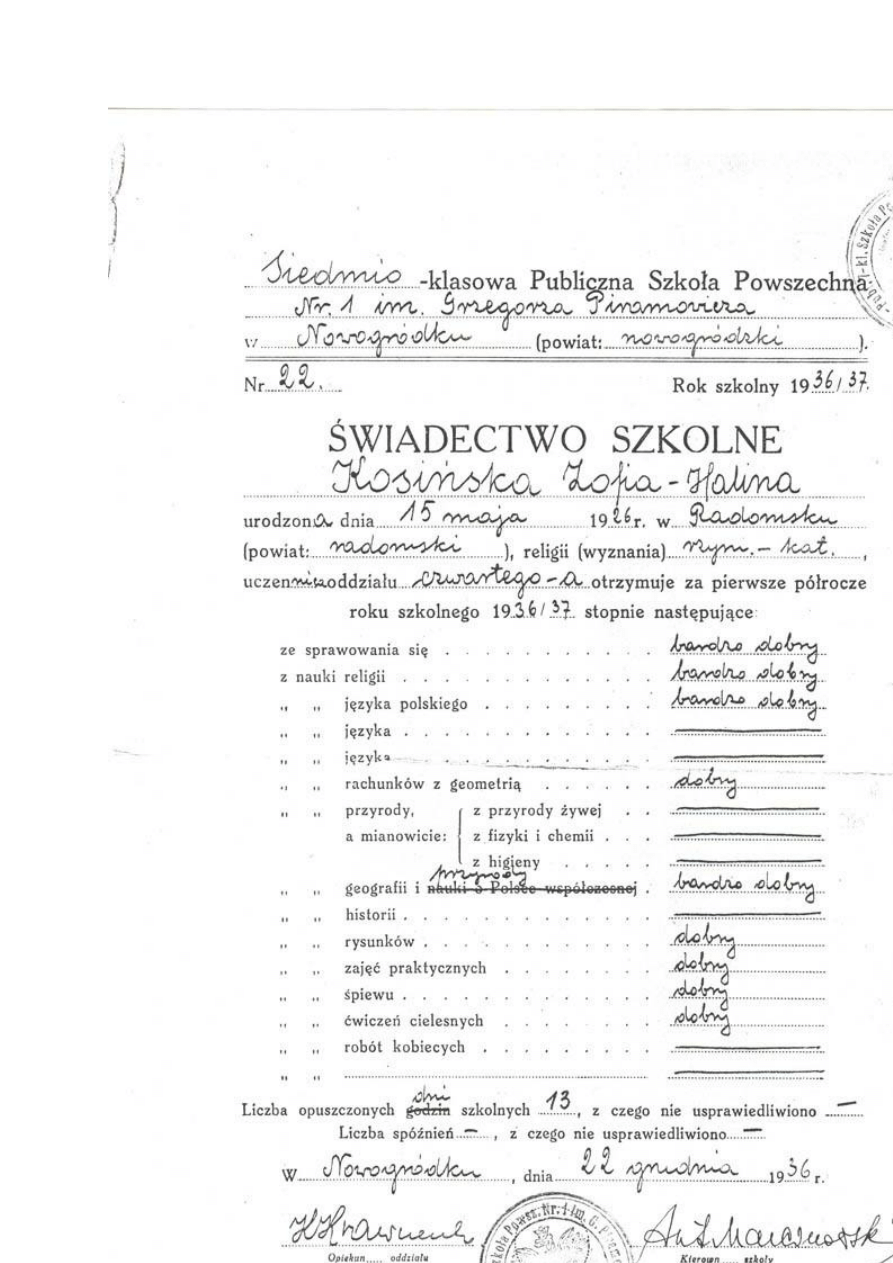 Siedmio-klasowa Publiczna Szkoła Powszechna
Nr. 1 im. Grzegorza Piramowicza
w Nowogródku (powiat: nowogródzki ).
Nr. 22. Rok szkolny 1936/37.
ŚWIADECTWO SZKOLNE
Kosińska Zofia-Halina
urodzona dnia 15 maja 1926 r. w Radomsku
(powiat: radomski ), religii (wyznania) rzym.-kat.,
uczennica oddziału czwartego-a otrzymuje za pierwsze półrocze
roku szkolnego 1936/37 stopnie następujące:
ze sprawowania się . . . bardzo dobry
z nauki religii . . . bardzo dobry
„ „ języka polskiego . . . bardzo dobry
„ „ języka . . .
„ „ języka . . .
„ „ rachunków z geometrią . . . dobry
„ „ przyrody, z przyrody żywej . .
a mianowicie: z fizyki i chemii . . .
z higieny . . .
przyrody
„ „ geografii i nauki o Polsce współczesnej . bardzo dobry
„ „ historii . . .
„ „ rysunków . . . dobry
„ „ zajęć praktycznych . . . dobry
„ „ śpiewu . . . dobry
„ „ ćwiczeń cielesnych . . . dobry
„ „ robót kobiecych . . .
„ „
dni
Liczba opuszczonych godzin szkolnych 13, z czego nie usprawiedliwiono —
Liczba spóźnień — , z czego nie usprawiedliwiono —
W Nowogródku, dnia 22 grudnia 1936 r.
Opiekun oddziału Kierown szkoły